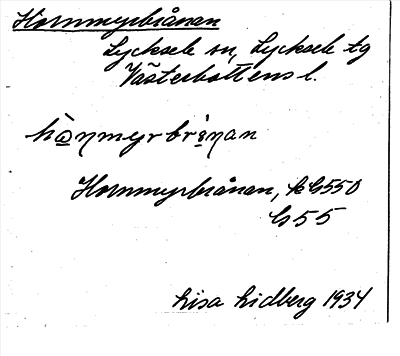 Hornmyrbrånan
Lycksele sn, Lycksele tg
Västerbottens l.
Hornmyrbrånan, k G550
G 55
Lisa Lidberg 1934